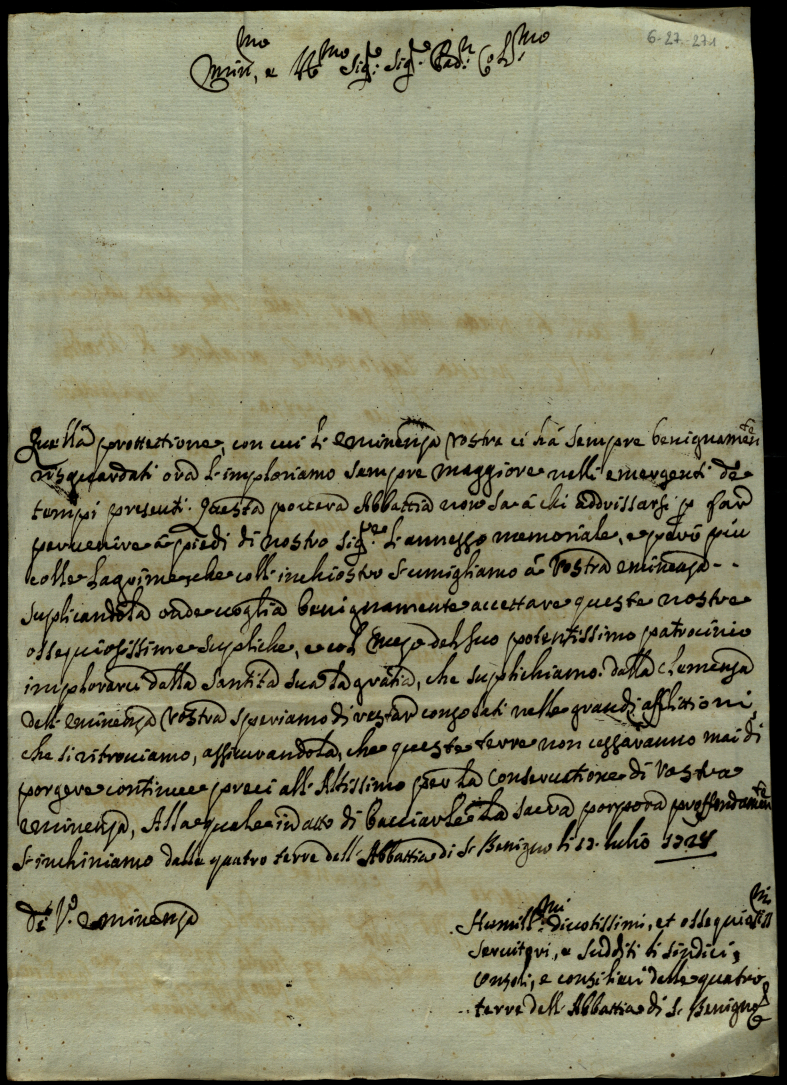 6-27-271
Emin.mo, e R.mo Sig.e Sig.e Pad.n Col.mo
Quella prottectione, con cui l'Eminenza Vostra ci há sempre benignamen.te
risguardati ora l'imploriamo sempre maggiore nelli emergenti de
tempi presenti. Questa povera Abbattia non sa á chi addrissarsi p far
pervenire á piedi di nostro Sig.re l'annesso memoriale, e però più
colle lagrime che coll'inchiostro s'umigliamo á Vostra eminenza--
suplicandola onde voglia benignamente accettare queste nostre
ossequiosissime supliche, e col mezo del suo potentissimo patrocinio
implorarci dalla Santità sua la gratia, che suplichiamo. dalla clemenza
dell'Eminenza Vostra speriamo di restar consolati nelle grandi afflittioni,
che si ritroviamo, assicurandola, che queste terre non cessaranno mai di
porgere continue preci all'Altissimo per la Conservatione di Vostra
eminenza, Alla quale in atto di bacciarle la sacra porpora proffondamen.te
s'inchiniamo dalle quatro terre dell'Abbattia di S. Benigno li 13. lulio 1728
Di V.a eminenza
Humill.mi divotissimi, et ossequiosis.mi
servitori, e sudditi li sindici,
Consoli, e consiglieri delle quatro
terre dell'Abbattia di S. Benigno